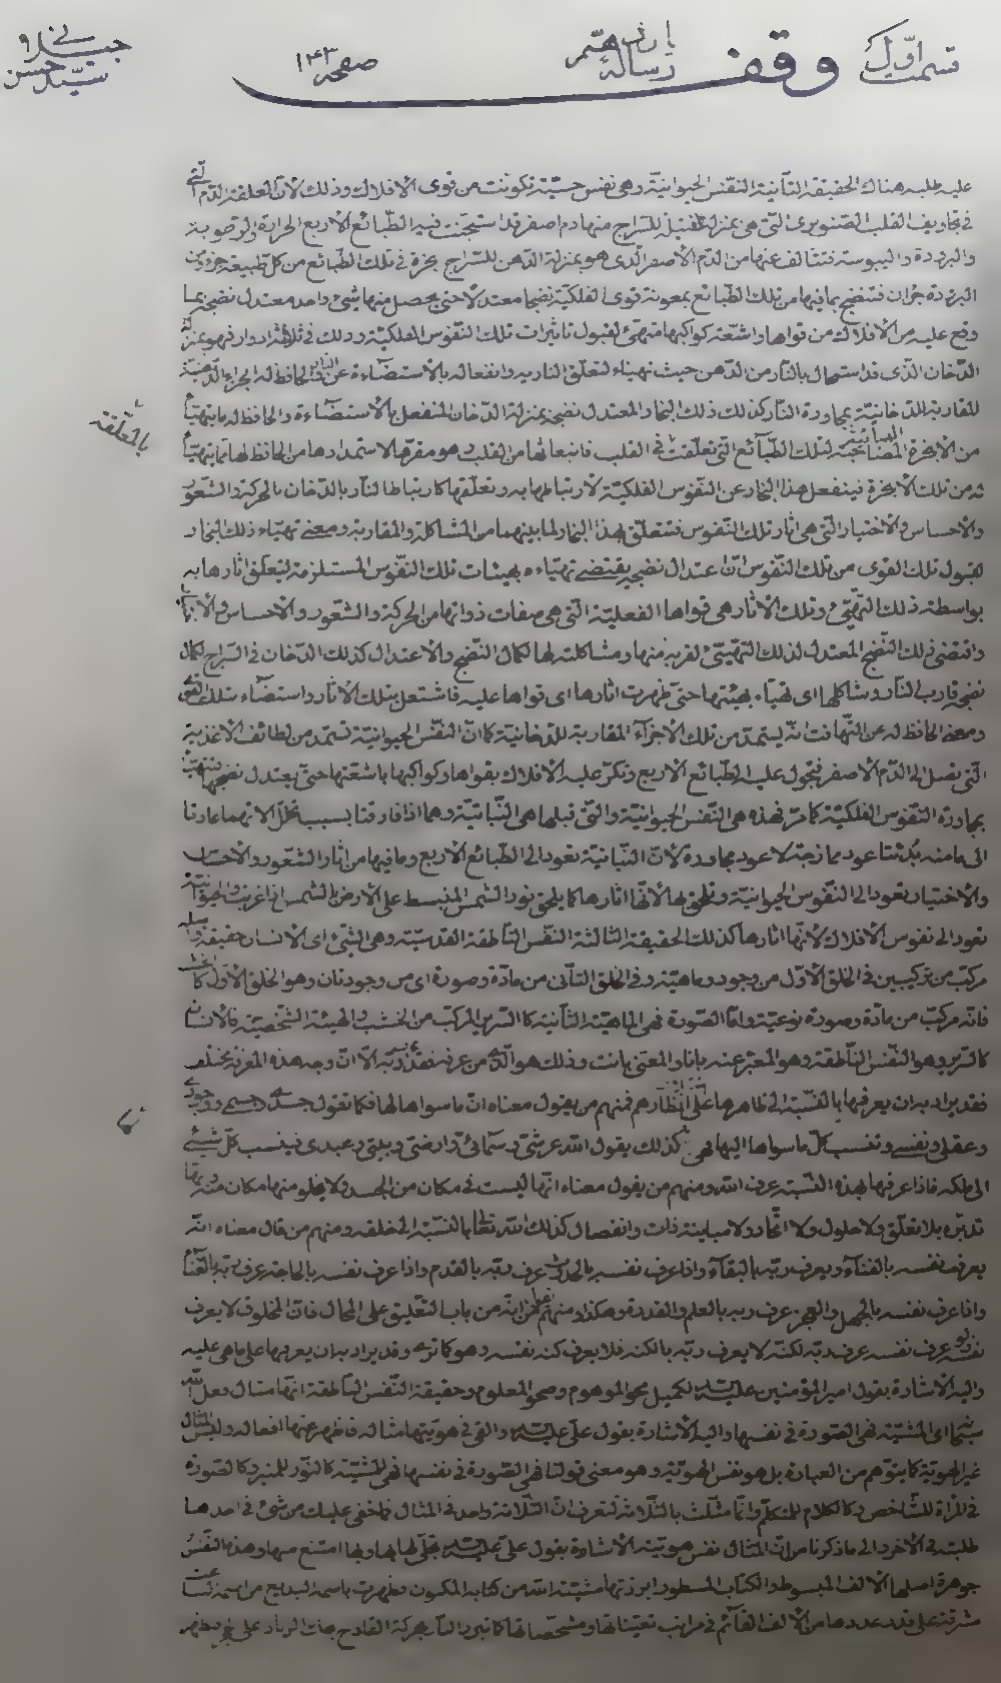 قسمت اوّل
وقف
رسالة
صفحه ١٤٣
سيّد حسن
عليه طلبه هناك الحقيقة الثانية النفس الحيوانيّة وهي نفس حسّيّة تكوّنت من قوى الافلاك وذلك لانّ العلقة الدّم الّتي
في تجاويف القلب الصنوبرى التي هي بمنزلة الفتيلة للسّراج منها دم اصفر قد استجنّت فيه الطّبائع الاربع الحرارة والرّطوبة
والبرودة واليبوسة فتتألف عنها من الدّم الأصفر الّذى هو بمنزلة الدّهن للسّراج بخرة في تلك الطّبائع من كل طبيعة جزء ومن
البرودة جزءان فتنضج بما فيها من تلك الطّبائع بمعونة قوى الفلكيّة نضجا معتدلا حتى يحصل منها شئ واحد معتدل نضجه بما
وقع عليه من الأفلاك من قواها واشعّة كواكبها متهيّئ لقبول تاثيرات تلك النّفوس الفلكيّة وذلك في ثلثة ادوار فهو بمنزلة
الدّخان الّذى قد استحال بالنّار من الدّهن حيث تهيّاء لتعلّق النّار به وانفعاله بالأستضاءة عن النّار والحافظ له الاجزاء الدّهنيّة
المقاربة للدّخانيّة بمجاورة النّار كذلك ذلك البخار المعتدل نضجه بمنزلة الدّخان المنفعل بالأستضاءة والحافظ له ما يتهيّأ
بالمعلّقة
من الأبخرة المصاحبة لتلك الطّبائع التي تعلّقت في القلب فانبعاثها من القلب وهو مقرّها لاستمدادها من الحافظ لها ممّا يتهيّأ
له من تلك الأبخرة فينفعل هذا البخار عن النّفوس الفلكيّة لارتباطها به وتعلّقها كارتباط النّار بالدّخان بالحركة والشّعور
والاحساس والاختيار الّتي هي اثار تلك النّفوس فتتعلّق بهذا البخار لما بينهما من المشاكلة والمقاربة ومعنى تهيّاء ذلك البخار
لقبول تلك القوى من تلك النّفوس انّ اعتدال نضجه يقتضي تهيّاءه بهيئات تلك النّفوس المستلزمة لتعلّق اثارها به
بواسطة ذلك التّهيّئ وتلك الاثار هي قواها الفعليّة الّتي هي صفات ذواتها من الحركة والشّعور والاحساس والأختيار
واقتضى ذلك النّضج المعتدل لذلك التهيّئ لقربه منها ومشاكلته لها لكمال النّضج والأعتدال كذلك الدّخان في السّراج لكمال
نضجه قارب النّار وشاكلها اى تهيّأ بهيئتها حتى ظهرت اثارها اى قواها عليه فاشتعل بتلك الاثار واستضاء بتلك القوى
ومعنى الحافظ له عن التّهافت انّه يستمدّ من تلك الأجزاء المقاربة للدّخانيّة كما انّ النّفس الحيوانيّة تستمد من لطائف الأغذية
الّتي تصل الى الدّم الأصفر فتجول عليه الطّبائع الأربع وتكرّ عليه الافلاك بقواها وكواكبها باشعّتها حتى يعتدل نضجها فتتهيّأ
بمجاورة النّفوس الفلكيّة كما مرّ فهذه هي النّفس الحيوانيّة والّتي قبلها هي النّباتيّة وهما اذا فارقتا بسبب تخلّل الاتهما عادتا
الى ما منه بُدئتا عود ممازجة لا عود مجاورة لأنّ النّباتيّة تعود الى الطّبائع الأربع وما فيها من اثار الشّعور والأحساس
والأختيار تعود الى النّفوس الحيوانيّة وتلحق بها لأنّها اثارها كما يلحق نور الشّمس المنبسط على الأرض بالشّمس اذا غربت والحيوانيّة
تعود الى نفوس الافلاك لأنّها اثارها كذلك الحقيقة الثّالثة النّفس النّاطقة القدسيّة وهي الشّئ اى الأنسان حقيقة واصله
مركّب من تركيبين في الخلق الأوّل من وجود وماهيّة وفي الخلق الثّانى من مادّة وصورة اى من وجود ثان وهو الخلق الأوّل كالخشب
فانّه مركّب من مادّة وصورة نوعيّة وامّا الصّورة فهى الماهيّة الثّانية كالسّرير المركّب من الخشب والهيئة الشّخصيّة فالأنسان
كالسّرير وهو النّفس النّاطقة وهو المعبّر عنه بانا والمعنى بانت وذلك هو الّذى من عرفه فقد عرف ربّه الّا انّ وجه هذه المعرفة يختلف
فقد يراد به ان يعرفها بالنّسبة الى ظاهرها على انظارهم فمنهم من يقول معناه انّ ما سواها لها فكما تقول جسدى وجسمى ووجودى
وعقلى ونفسى وتنسب كلّ ما سواها اليها فهى كذلك يقول الله عرشى وسمائى وارضى وبيتى وعبدى فينسب كلّ شئ
الى ملكه فاذا عرفها بهذه النّسبة عرف الله ومنهم من يقول معناه انّها ليست في مكان من الجسد ولا يخلو منها مكان منه وانّها
تدبّره بلا تعلّق ولا حلول ولا اتّحاد ولا مباينة ذات وانفصال كذلك الله تعالى بالنّسبة الى خلقه ومنهم من قال معناه انّه
يعرف نفسه بالفناء ويعرف ربّه بالبقاء واذا عرف نفسه بالحدوث عرف ربّه بالقدم واذا عرف نفسه بالحاجة عرف ربّه بالغناء
واذا عرف نفسه بالجهل والعجز عرف ربه بالعلم والقدرة وهكذا ومنهم من جعله من باب التّعليق على المحال فانّ المخلوق لا يعرف
نفسه ولو عرف نفسه عرف ربّه لكنّه لا يعرف ربّه بالكنه فلا يعرف كنه نفسه وهو كما ترى وقد يراد به ان يعرفها على ما هى عليه
واليه الأشارة بقول امير المؤمنين عليه السلام لكميل محو الموهوم وصحو المعلوم وحقيقة النّفس النّاطقة انّها مثال فعل الله
سبحانه اى المشيّة فهى الصّورة في نفسها واليه الأشارة بقول علىّ عليه السلام والقى في هويّتها مثاله فاظهر عنها افعاله وليس المثال
غير الهويّة كما يتوهّم من العبارة بل هو نفس الهويّة وهو معنى قولنا فهى الصّورة في نفسها فهى للمشيّة كالنّور للمنير وكالصّورة
في المرآة للشّاخص وكالكلام للمتكلّم وانّما مثّلت بالثّلاثة لتعرف انّ الثّلاثة واحد في المثال فما خفى عليك من شئ في احدها
طلبته في الأخر والى ما ذكرنا من انّ المثال نفس هويّته الأشارة بقول علىّ عليه السلام تجلّى لها بها وبها امتنع منها وهذه النّفس
جوهرة اصلها الألف المبسوط والكتاب المسطور ابرزتها مشيّة الله من كتابه المكنون وظهرت باسمه البديع من اسمه الباعث
مشرقة على قدر عددها من الألف القائم في مراتب تعيّناتها ومشخّصاتها كما تبرز النّار بحركة القادح بحكّ الزّناد على الحجر وتظهر